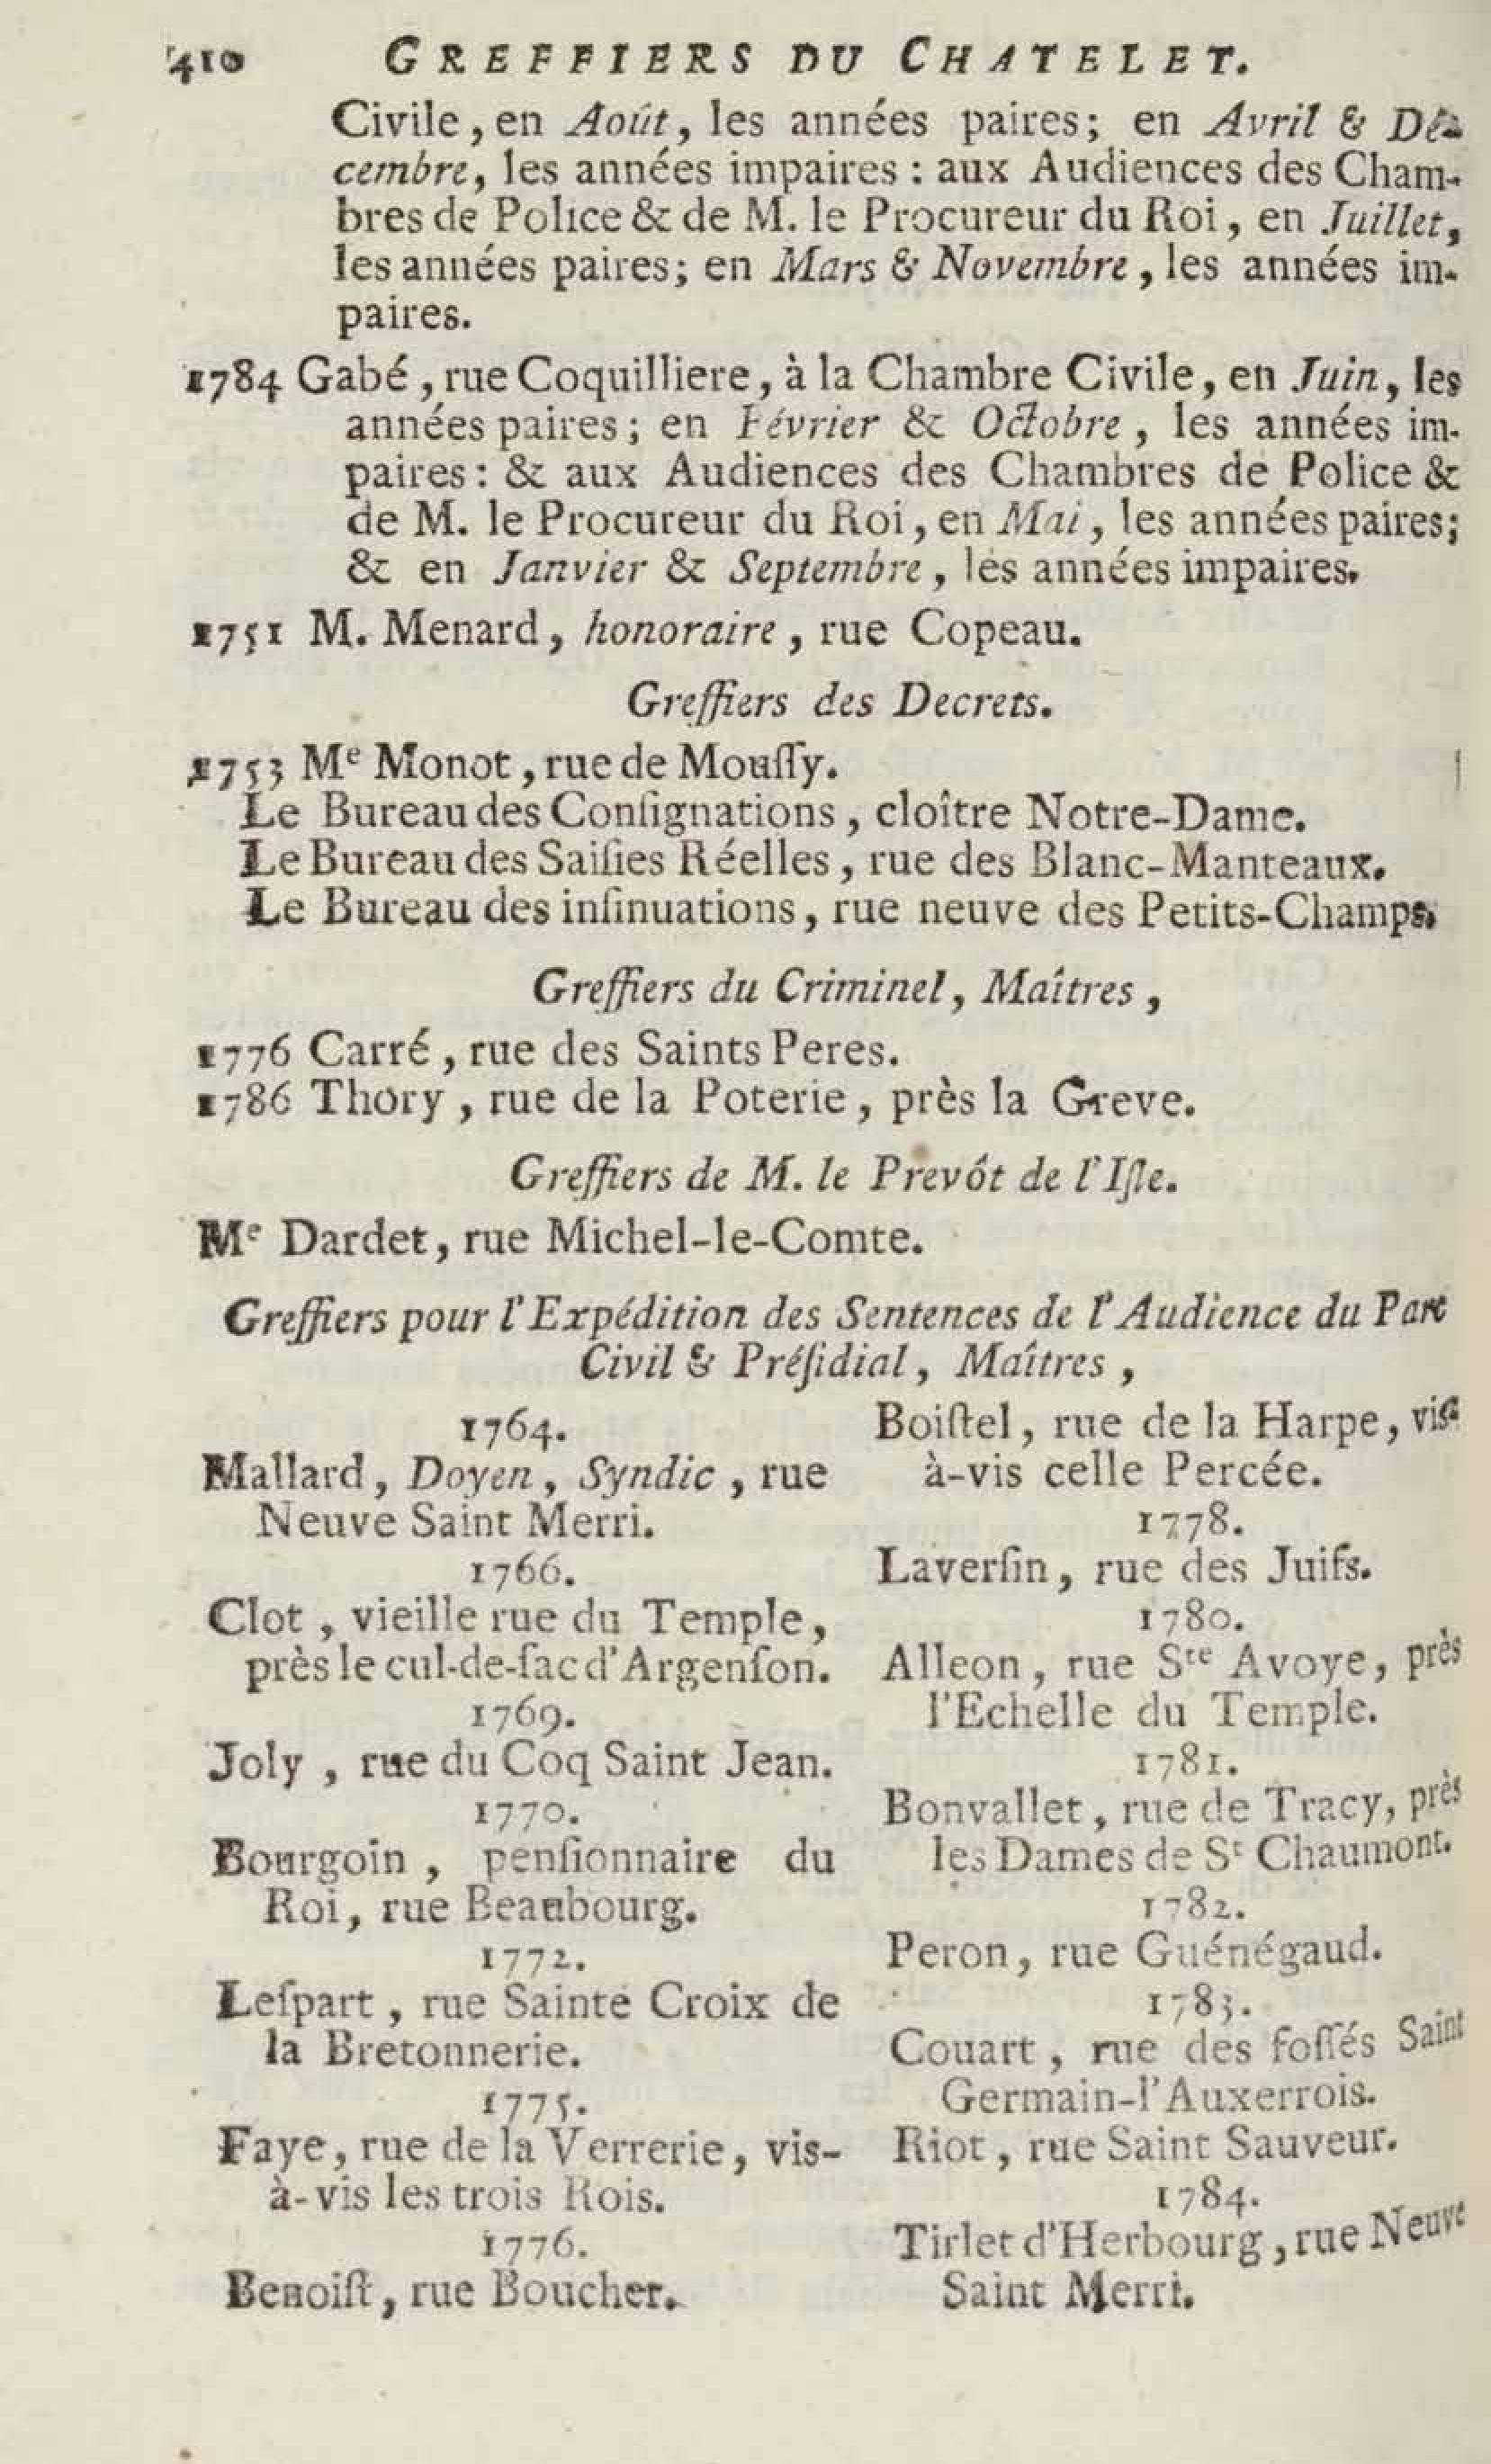 410 GREFFIERS DU CHATELET.
Civile, en Août, les années paires; en Avril & Dé-
cembre, les années impaires : aux Audiences des Cham-
bres de Police & de M. le Procureur du Roi, en Juillet,
les années paires; en Mars & Novembre, les années im-
paires.
1784 Gabé, rue Coquilliere, à la Chambre Civile, en Juin, les
années paires; en Février & Octobre, les années im-
paires: & aux Audiences des Chambres de Police &
de M. le Procureur du Roi, en Mai, les années paires;
& en Janvier & Septembre, les années impaires.
1751 M. Menard, honoraire, rue Copeau.
Greffiers des Decrets.
1753 Me Monot, rue de Mouſſy.
Le Bureau des Conſignations, cloître Notre-Dame.
Le Bureau des Saiſies Réelles, rue des Blanc-Manteaux.
Le Bureau des inſinuations, rue neuve des Petits-Champs.
Greffiers du Criminel, Maîtres,
1776 Carré, rue des Saints Peres.
1786 Thory, rue de la Poterie, près la Greve.
Greffiers de M. le Prevôt de l'Iſle.
Me Dardet, rue Michel-le-Comte.
Greffiers pour l'Expédition des Sentences de l'Audience du Parc
Civil & Préſidial, Maîtres,
1764.
Mallard, Doyen, Syndic, rue
Neuve Saint Merri.
1766.
Clot, vieille rue du Temple,
près le cul-de-ſac d'Argenſon.
1769.
Joly, rue du Coq Saint Jean.
1770.
Bourgoin, penſionnaire du
Roi, rue Beaubourg.
1772.
Leſpart, rue Sainte Croix de
la Bretonnerie.
1775.
Faye, rue de la Verrerie, vis-
à-vis les trois Rois.
1776.
Benoiſt, rue Boucher.
Boiſtel, rue de la Harpe, vis-
à-vis celle Percée.
1778.
Laverſin, rue des Juifs.
1780.
Alleon, rue Ste Avoye, près
l'Echelle du Temple.
1781.
Bonvallet, rue de Tracy, près
les Dames de St Chaumont.
1782.
Peron, rue Guénégaud.
1783.
Couart, rue des foſſés Saint
Germain-l'Auxerrois.
Riot, rue Saint Sauveur.
1784.
Tirlet d'Herbourg, rue Neuve
Saint Merri.